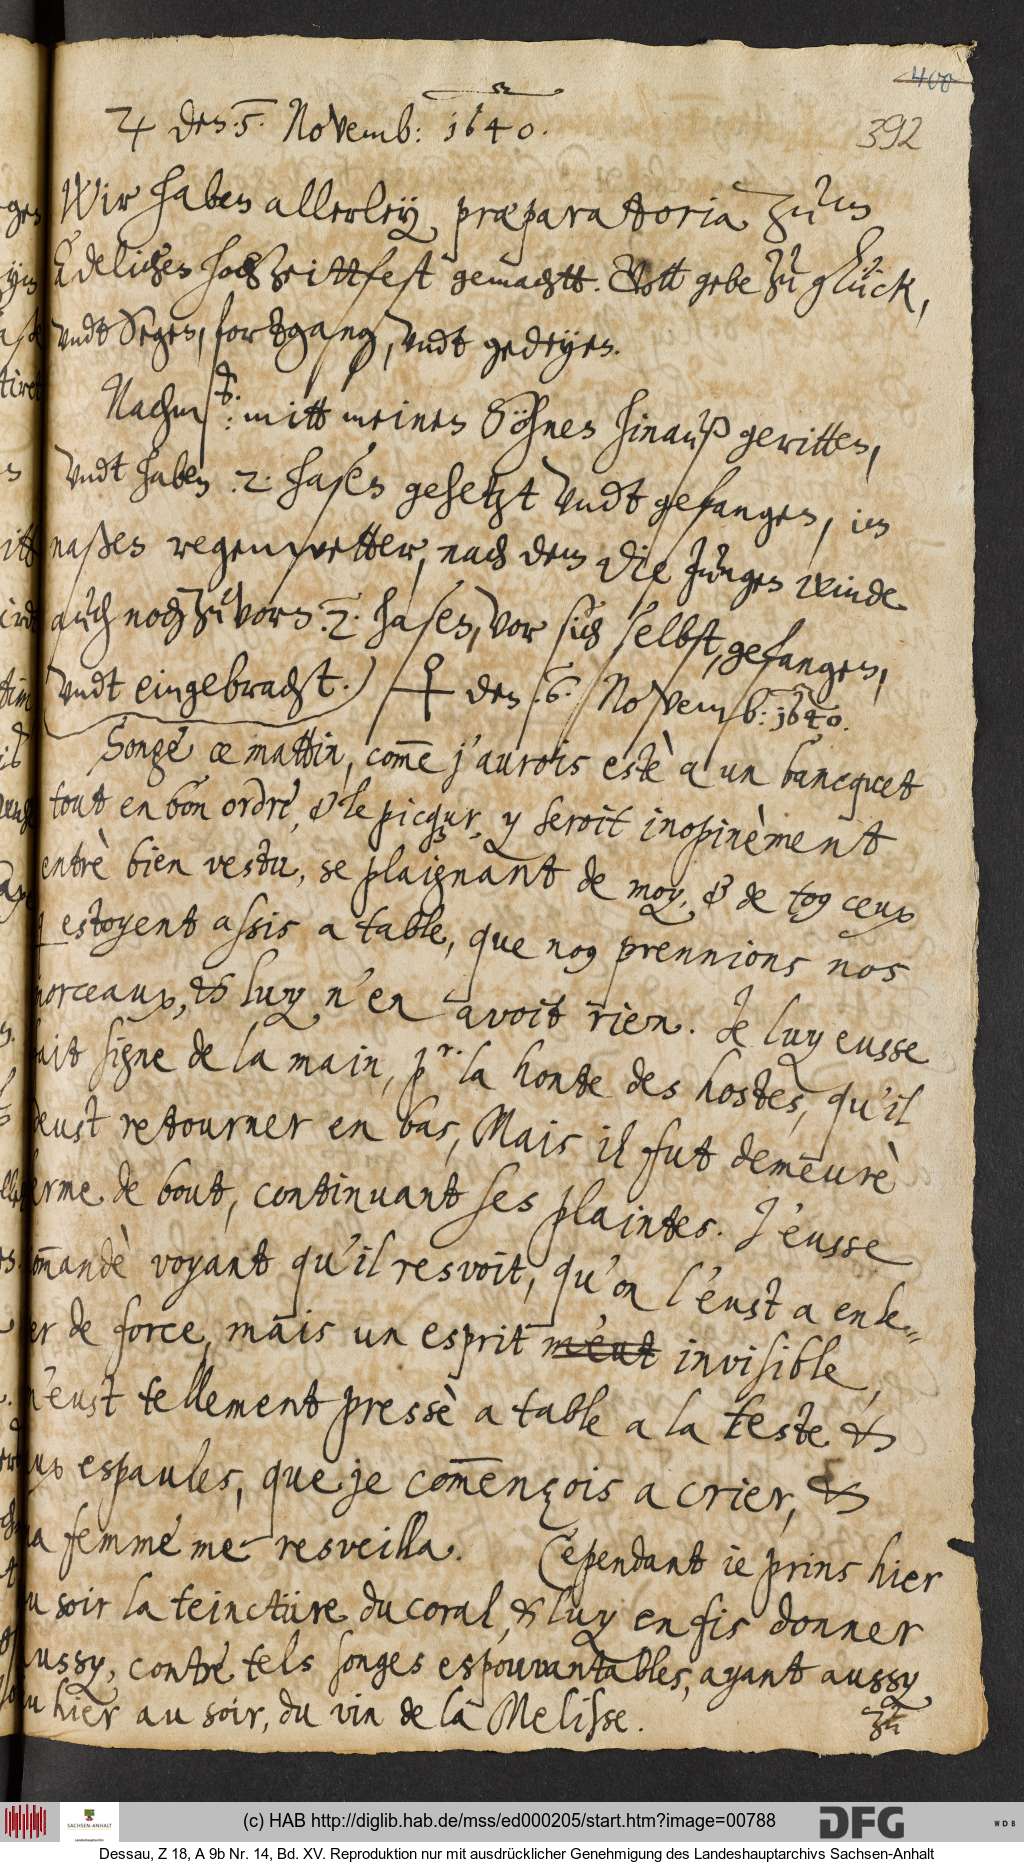 400
392
♃ den: 5. Novemb: 1640.
Wir haben allerley præparatoria zum
Edelichen hochzeittfest gemachtt. Gott gebe zu glück,
vndt Segen, fortgang, vndt gedeyen.
Nachm: mitt meinen Söhnen hinauß geritten,
vndt haben 2. hasen gehetzt vndt gefangen, in
naßen regenwetter, nach dem die Jungen winde
auch noch zuvorn 2. hasen, vor sich selbst, gefangen,
vndt eingebracht.) ♀ den: 6. Novemb: 1640.
Songè ce mattin, com̅e j'aurois estè a un bancquet
tout en bon ordre, & le picqur, y seroit inopinèment
entrè bien vestu, se plaignant de moy, & de to9 ceux
q estoyent assis a table, que no9 prennions nos
morceaux, & luy n'en avoit rien. Je luy eusse
fait signe de la main, pr. la honte des hostes, qu'il
deust retourner en bas, Mais il fut demeurè
ferme de bout, continuant ses plaintes. J'eusse
com̅andè voyant qu'il resvoit, qu'on l'eust a enle-
er de force, mais un esprit m'eut invisible,
m'eust tellement pressè a table a la teste &
aux espaules, que je com̅ençois a crier, &
ma femme me resveilla. Cependant ie prins hier
au soir la teinctüre du coral, & luy en fis donner
aussy, contre tels songes espouvantables, ayant aussy
bu hier au soir, du vin de la Melisse.
(c) HAB http://diglib.hab.de/mss/ed000205/start.htm?image=00788
SACHSEN-ANHALT
DFG
WDB
Dessau, Z 18, A 9b Nr. 14, Bd. XV. Reproduktion nur mit ausdrücklicher Genehmigung des Landeshauptarchivs Sachsen-Anhalt